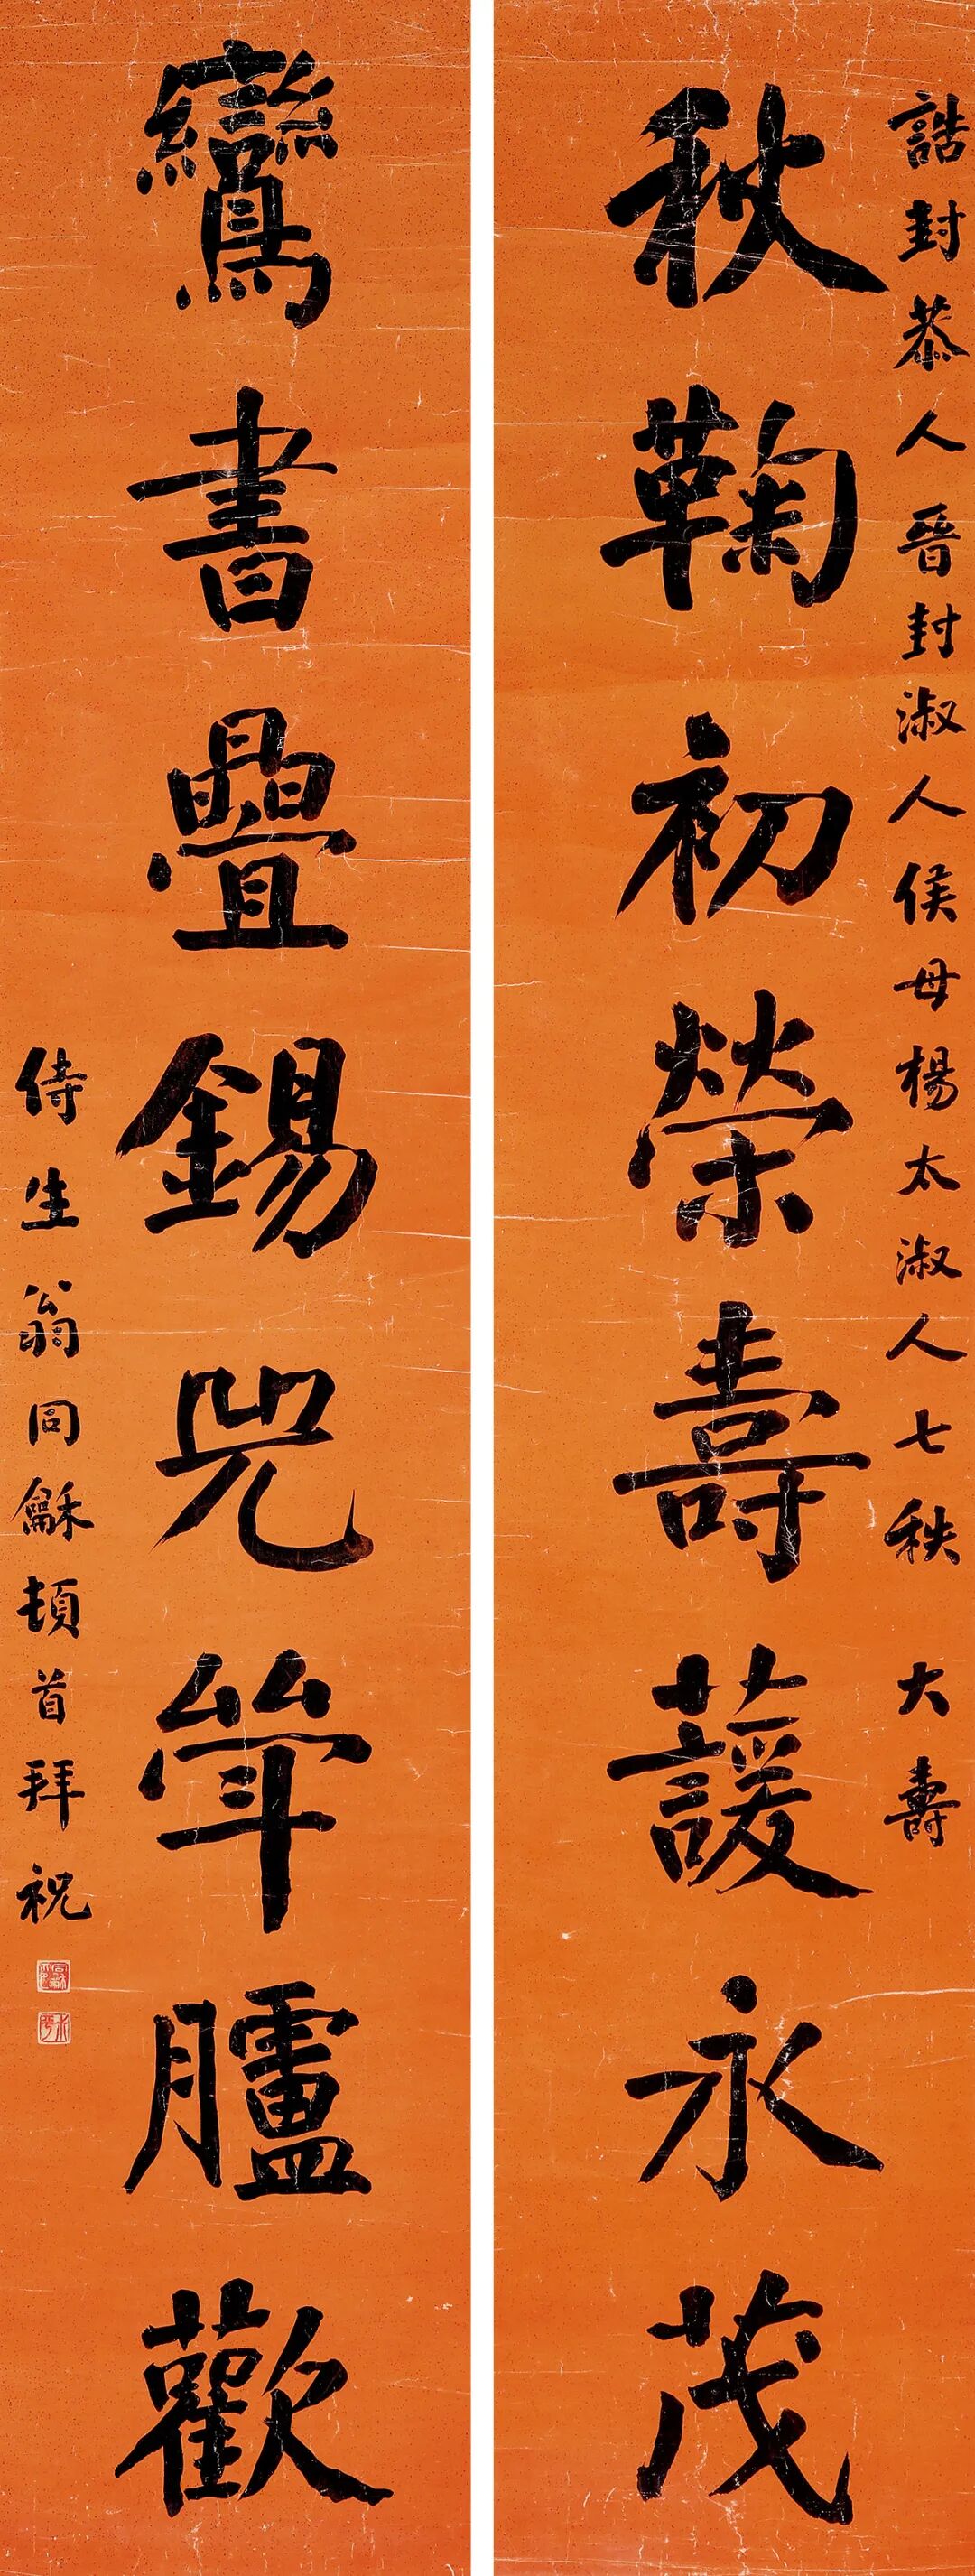 誥封恭人晉封淑人侯母楊太淑人七秩 大壽
秋鞠初榮壽蘐永茂
鸞書疊錫兕斝臚歡
侍生翁同龢頓首拜祝